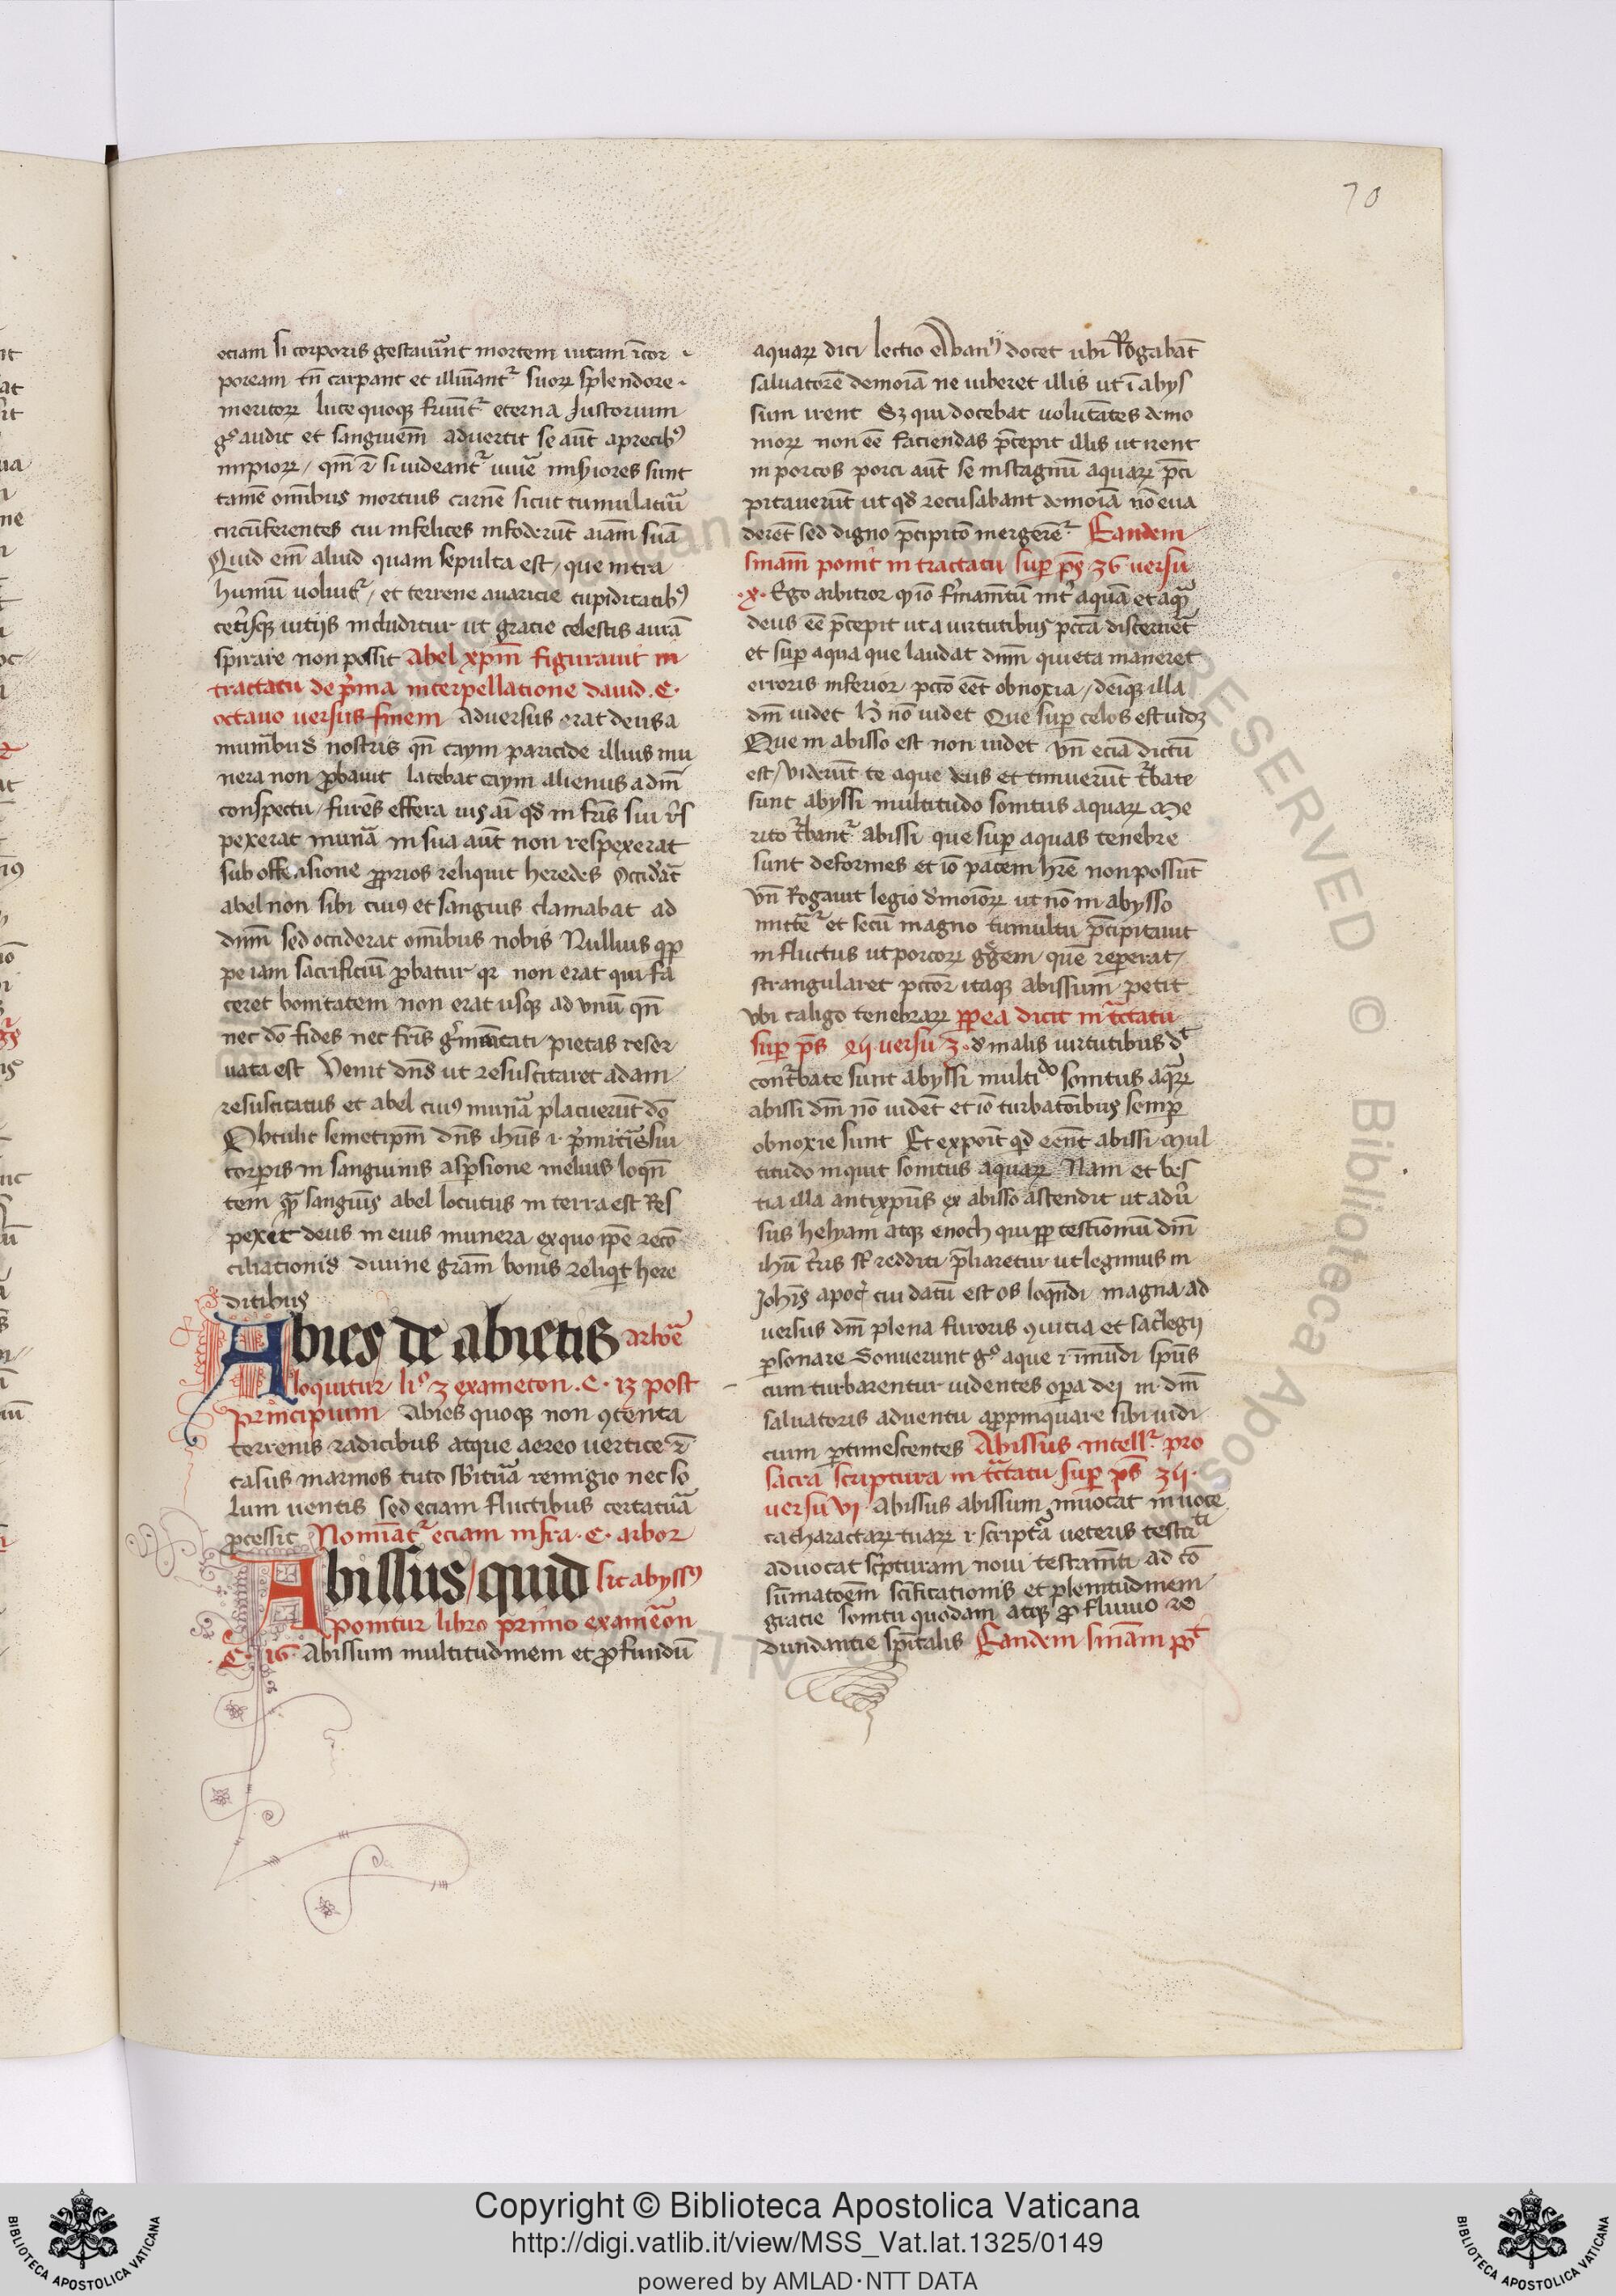 70
eciam si corporis gestauer̄nt mortem uitam īcor
poream tn̄ carpant et illuīantr suoꝝ splendore
meritoꝝ luce quoqꝫ fruūtr eterna Justorium
gº audit et sanguinem̄ aduertit se aūt a precibꝰ
impioꝝ / qm̄ & si uideantr uiuẽ miẜiores sunt
tamē om̄ibus mortuis carnē sicut tumulatiuā
circūferentes cui infelices infoderūt aīam suā
Quid em̄ aliud quam sepulta est / que intra
humū uoluitr / et terrene auaricie cupiditatibꝰ
ceterisqꝫ uitijs includitur ut gracie celestis aurā
spirare non possit Abel xpm̄ figurauit in
tractatu de p̄ma interpellatione dauid .C.
octauo uersus finem Aduersus erat deus a
munībus nostris qn̄ caym paricide illius mu
nera non ꝓbauit latebat caym alienus a dm̄
conspectu / furēs effera
pexerat munā in sua aūt non respexerat
sub offensione ꝓprios reliquit heredes Occidāt
abel non sibi cuiꝰ et sanguis clamabat ad
dnm̄ sed occiderat om̄ibus nobis Nullius qꝑ
pe iam sacrificiū ꝓbatur qꝛ non erat qui fa
ceret bonitatem non erat usqꝫ ad vnū qn̄
nec dō fides nec fr̄is gr̄manitati pietas reser
uata est Venit dn̄s ut resuscitaret adam
resuscitatus et abel cuiꝰ munā placuerūt dō
Obtulit semetipm̄ dn̄s ih̄us .i. p̄mitias sui
corꝑis in sanguinis aspersione melius loqn̄
tem qꝫ sanguīs abel locutus in terra est Res
pexit deus in eius munera / ex quo ip̄e recō
ciliationis diuine gram̄ bonis reliqit here
ditibus
Abies de abietis arbōe
loquitur liº 3 exameron .C. 13 post
principium Abies quoqꝫ non ꝯtenta
terrenis radicibus atque aereo uertice &
casus marinos tuto sb̄ituā remigio nec so
lum uentis sed eciam fluctibus certatuā
ꝓcessit Nomiātr eciam infra .C. arbor
Abissus / quid sit abyssꝰ
ponitur libro primo examēron
.C. 16 Abissum multitudinem et ꝓfundū
aquaꝝ dici lectio docet ubi Rogabāt
saluatorē demoīa ne iuberet illis ut ī abys
sum irent Sꝫ qui docebat uolūtates demo
nioꝝ non eē faciendas p̄cepit illis ut irent
in porcos porci aūt se in stagnū aquaꝝ p̄ci
pitauerūt ut qd̄ recusabant demoīa nō eua
derēt sed digno p̄cipitō mergerētr Eandem
sniam̄ ponit in tractatu suꝑ ps̄ 36 uersu
.x. Ego arbitror ꝙ iō firmamtū intr aquā et aqā
deus eē p̄cepit ut a uirtutibus pctā discernēt
et suꝑ aqua que laudat dnm̄ quieta maneret
erroris inferior pctō eēt obnoxia / deniqꝫ illa
dm̄ uidet h̄ nō uidet Que suꝑ celos est uidꝫ
Que in abisso est non uidet vn̄ eciā dictū
est / Viderūt te aque deus et timuerūt tr̄bate
sunt abyssi multitudo sonitus aquaꝝ Me
rito tr̄bantr abissi que suꝑ aquas tenebre
sunt deformes et iō pacem hr̄e non possūt
vn̄ Rogauit legio dmoīoꝝ ut nō in abysso
mittēr et secū magno tumultu p̄cipitauit
in fluctus ut porcoꝝ gḡem quē repperat /
strangularet pctōr itaqꝫ abissum petit
vbi caligo tenebraꝝ ꝓpea dicit in tc̄tatu
suꝑ ps̄ uersu 3. d malis uirtutibus dt
contr̄bate sunt abyssi multido sonitus aqaꝝ
abissi dm̄ nō uidēt et iō turbatōibus semꝑ
obnoxie sunt Et expoīt qd eēnt abissi Mul
titudo inquit sonitus aquaꝝ Nam et bes
tia illa antixpūs ex abisso ascendit ut adū
sus helyam atqꝫ enoch qui ꝓp testimoniū dnī
ih̄u tr̄is st̄ redditi p̄liaretur ut legimus in
Joh̄is apoc̄ cui datū est os loqn̄di magna ad
uersus dm̄ plena furoris et sacrlegij
ꝑsonare Sonuerunt gº aque .i. īmūdi spūs
cum turbarentur uidentes oꝑa dei in dnī
saluatoris aduentu aꝓpinquare sibi iudi
cium ꝑtimescentes Abissus intellr pro
sacra scriptura in tc̄tatu suꝑ ps̄
uersu vi Abissus abissum inuocat in uoce
catharactaꝝ tuaꝝ .i. scriptā ueteris testati
aduocat scp̄turam noui testamn̄ti ad cō
sumatoēm scīficationis et plenitudinem
gratie sonitu quodam atqꝫ ꝓfluuio re
dundantie spītalis Eandem sniam̄ pot
Copyright © Biblioteca Apostolica Vaticana
http://digi.vatlib.it/view/MSS_Vat.lat.1325/0149
powered by AMLAD·NTT DATA
BIBLIOTECA APOSTOLICA VATICANA
BIBLIOTECA APOSTOLICA VATICANA